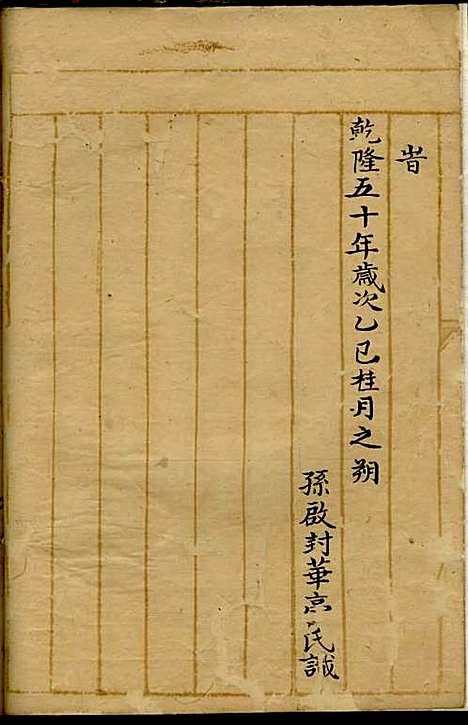 旹
乾隆五十年歲次乙巳桂月之朔
孫啟封華亭氏誠